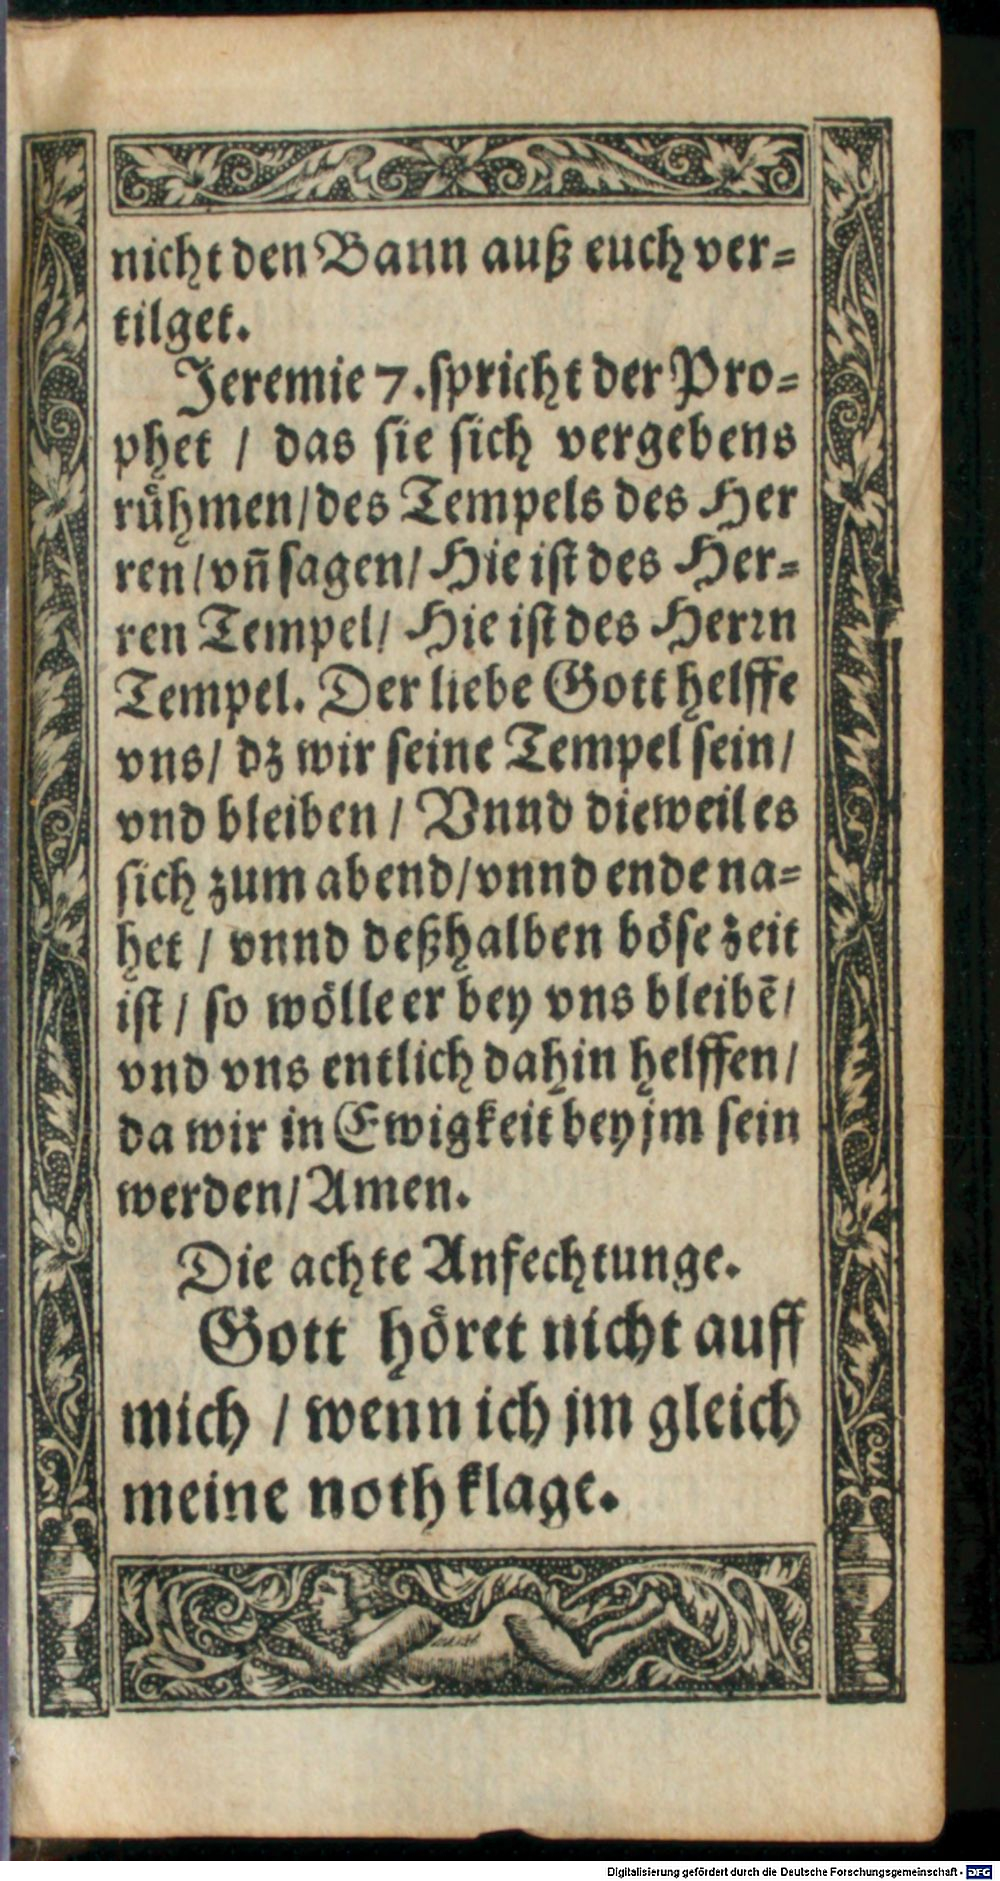 nicht den Bann auß euch ver=
tilget.
Jeremie 7. spricht der Pro=
phet / das sie sich vergebens
rühmen/des Tempels des Her
ren/vñ sagen/ Hie ist des Her=
ren Tempel/ Hie ist des Herrn
Tempel. Der liebe Gott helffe
vns/ dz wir seine Tempel sein/
vnd bleiben / Vnnd dieweil es
sich zum abend/vnnd ende na=
het / vnnd deßhalben böse zeit
ist / so wölle er bey vns bleibē/
vnd vns entlich dahin helffen/
da wir in Ewigkeit bey jm sein
werden/Amen.
Die achte Anfechtunge.
Gott höret nicht auff
mich / wenn ich jm gleich
meine noth klage.
Digitalisierung gefördert durch die Deutsche Forschungsgemeinschaft - DFG